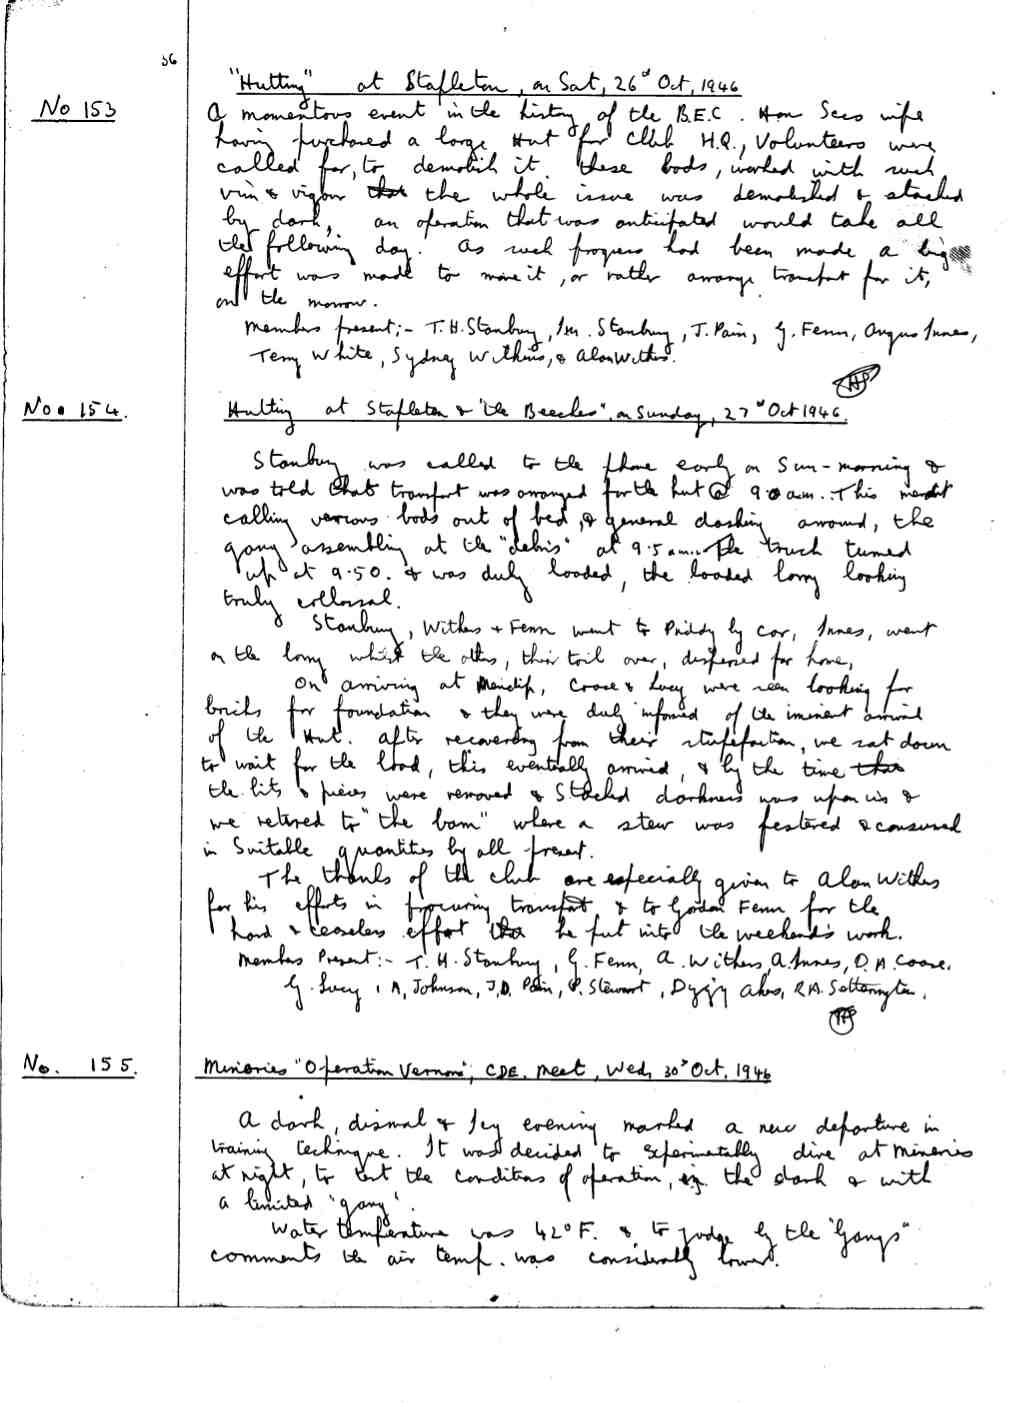 56
"Hutting" at Stapleton, on Sat, 26th Oct, 1946
No 153
A momentous event in the history of the B.E.C. Hon Secs wife
having purchased a large Hut for Club H.Q., Volunteers were
called for, to demolish it. these bods, worked with such
vim & vigour that the whole issue was demolished & stacked
by dark, an operation that was anticipated would take all
the following day. As such progress had been made a big
effort was made to move it, or rather arrange transport for it,
on the morrow.
Members present;- T.H. Stanbury, Mrs. Stanbury, J. Pain, G. Fenn, Angus Innes,
Terry White, Sydney Withins, & Alan Withers.
No. 154.
Hutting at Stapleton & "the Beeches", on Sunday, 27th Oct 1946.
Stanbury was called to the phone early on Sun-morning &
was told that transport was arranged for the hut @ 9.0 a.m. This meant
calling various bods out of bed, & general dashing arround, the
gang assembling at the "debris" at 9.5 a.m. The truck turned
up at 9.50. & was duly loaded, the loaded lorry looking
truly collossal.
Stanbury, Withers & Fenn went to Priddy by car, Innes, went
on the lorry whilst the others, their toil over, dispersed for home,
On arriving at Mendip, Coase & Lucy were seen looking for
bricks for foundation & they were duly informed of the iminent arrival
of the Hut. After recovering from their stupefaction, we sat down
to wait for the load, this eventually arrived, & by the time that
the bits & pieces were removed & stacked darkness was upon us &
we retired to "the barn" where a stew was festered & consumed
in Suitable quantities by all present.
The thanks of the club are especially given to Alan Withers
for his efforts in procuring transport & to Gordon Fenn for the
hard & ceaseless effort tha he put into the weekend's work.
Members Present:- T. H. Stanbury, G. Fenn, A. Withers, A. Innes, D.A. Coase,
G. Lucy, A, Johnson, J.D. Pain, P. Stewart, Dyzzy Akers, R.A. Setterington.
No. 155.
Mineries "Operation Vernons", CDE. Meet, Wed, 30th Oct, 1946
A dark, dismal & Icy evening marked a new departure in
training technique. It was decided to experimentally dive at Mineries
at night, to test the conditions of operation, in the dark & with
a limited 'gang'.
Water temperature was 42°F. & to judge by the "Gangs"
comments the air temp. was considerably lower.